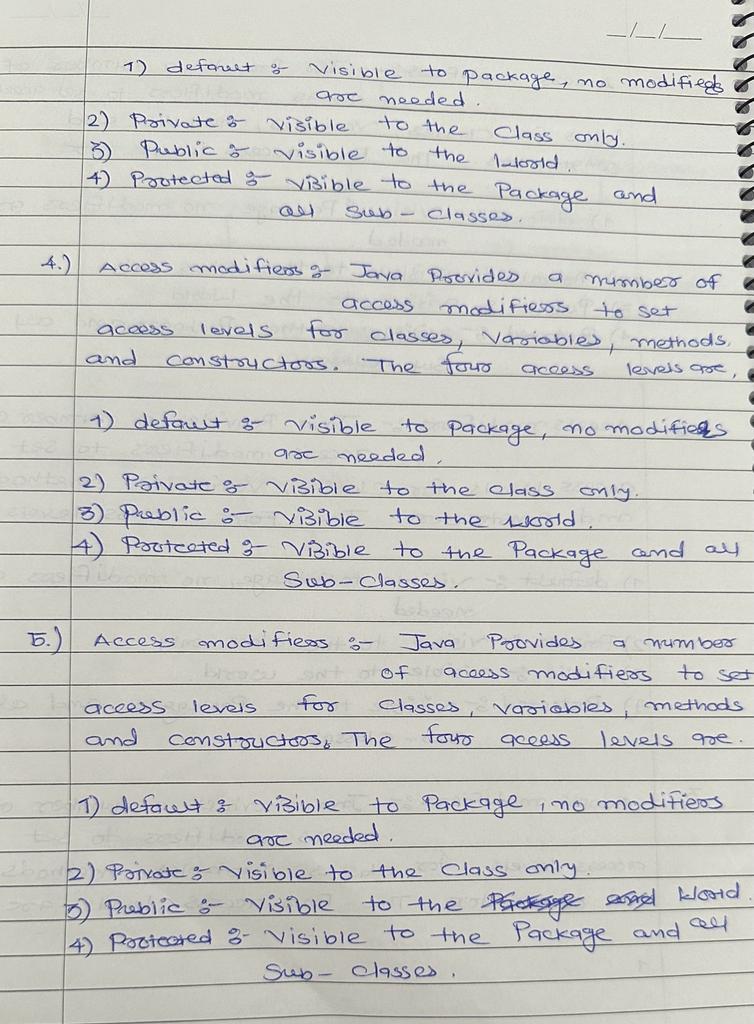 _/_/__
1) default :- Visible to package, no modifiers
are needed.
2) Private :- Visible to the Class only.
3) Public :- Visible to the World.
4) Protected :- Visible to the Package and
all Sub-Classes.
4.) Access modifiers :- Java Provides a number of
access modifiers to set
access levels for classes, Variables, methods,
and constructors. The four access levels are,
1) default :- Visible to Package, no modifiers
are needed.
2) Private :- Visible to the class only.
3) Public :- Visible to the World.
4) Protected :- Visible to the Package and all
Sub-Classes.
5.) Access modifiers :- Java Provides a number
of access modifiers to set
access levels for Classes, Variables, methods
and constructors, The four access levels are.
1) default :- Visible to Package, no modifiers
are needed.
2) Private :- Visible to the Class only.
3) Public :- Visible to the Package and World.
4) Protected :- Visible to the Package and all
Sub-Classes.